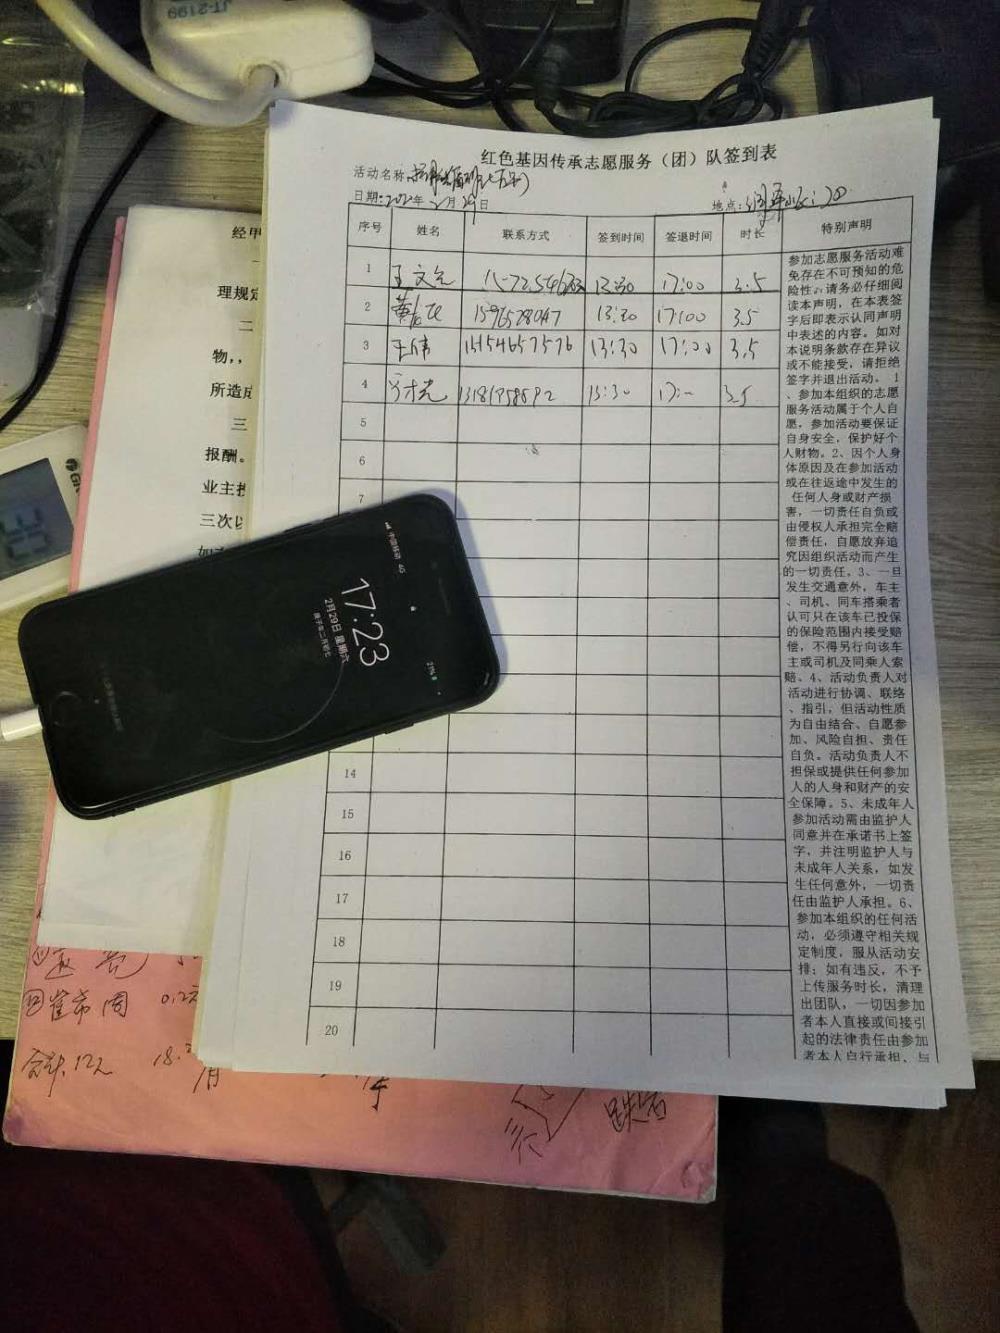 JT-2199
红色基因传承志愿服务（团）队签到表
活动名称:
日期: 2020年2月29日
地点:
序号 姓名 联系方式 签到时间 签退时间 时长 特别声明
1 王文
13:30 17:00 3.5
2 黄 13:30 17:00 3.5
3 王伟 13:30 17:00 3.5
4 13:30 17: 3.5
5
6
7
14
15
16
17
18
19
20
参加志愿服务活动难
免存在不可预知的危
险性，请务必仔细阅
读本声明，在本表签
字后即表示认同声明
中表述的内容。如对
本说明条款存在异议
或不能接受，请拒绝
签字并退出活动。 1
、参加本组织的志愿
服务活动属于个人自
愿，参加活动要保证
自身安全，保护好个
人财物。2、因个人身
体原因及在参加活动
或在往返途中发生的
任何人身或财产损
害，一切责任自负或
由侵权人承担完全赔
偿责任，自愿放弃追
究因组织活动而产生
的一切责任。3、一旦
发生交通意外，车主
、司机、同车搭乘者
认可只在该车已投保
的保险范围内接受赔
偿，不得另行向该车
主或司机及同乘人索
赔。4、活动负责人对
活动进行协调、联络
、指引，但活动性质
为自由结合、自愿参
加、风险自担、责任
自负。活动负责人不
担保或提供任何参加
人的人身和财产的安
全保障。5、未成年人
参加活动需由监护人
同意并在承诺书上签
字，并注明监护人与
未成年人关系，如发
生任何意外，一切责
任由监护人承担。6、
参加本组织的任何活
动，必须遵守相关规
定制度，服从活动安
排；如有违反，不予
上传服务时长，清理
出团队，一切因参加
者本人直接或间接引
起的法律责任由参加
者本人自行承担，与
经甲
理规定
二
物，，
所造成
三
报酬。
业主
三次以
中国移动 4G
21%
17:23
2月29日 星期六
庚子年二月初七
崔希周 0.2元
合计：12元 18.
月